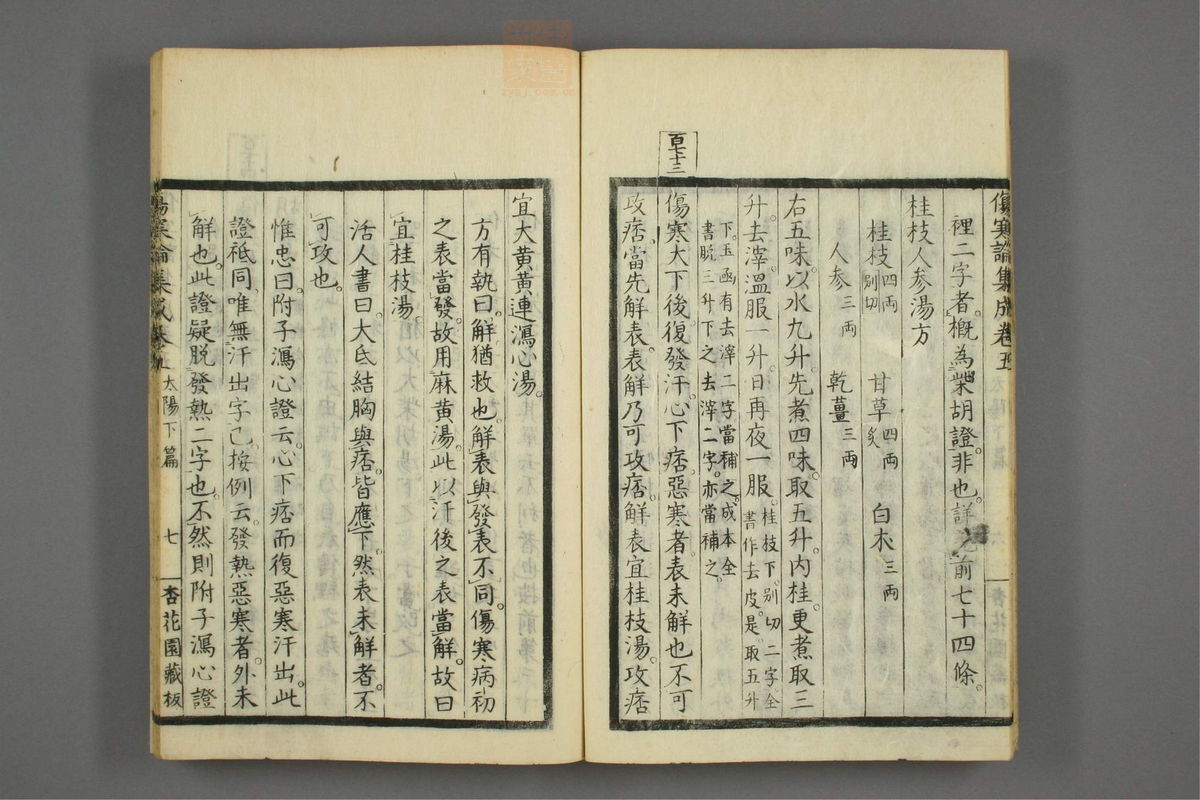 傷寒論集成卷五
裡二字者。概為柴胡證。非也。詳前七十四條。
桂枝人参湯方
桂枝四両別切 甘草四両炙 白朮三両
人参三両 乾薑三両
右五味。以水九升。先煮四味。取五升。内桂更煮。取三
升。去滓。温服一升。日再夜一服。桂枝下。別切二字。全書作去皮。是。取五升
下。玉函有去滓二字。當補之。成本全
書脱三升下之去滓二字。亦當補之。
百七十三
傷寒大下後。復發汗。心下痞。惡寒者。表未解也。不可
攻痞。當先解表。表解乃可攻痞。解表宜桂枝湯。攻痞
宜大黄黄連瀉心湯。
方有執曰。解猶救也。解表與發表不同。傷寒病初
之表當發。故用麻黄湯。此以汗後之表當解。故曰
宜桂枝湯。
活人書曰。大氐結胸與痞。皆應下。然表未解者。不
可攻也。
惟忠曰。附子瀉心證云。心下痞而復惡寒汗出。此
證祗同。唯無汗出字已。按例云。發熱惡寒者。外未
解也。此證疑脱發熱二字也。不然則附子瀉心證
傷寒論集成卷五 太陽下篇 七 杏花園藏板